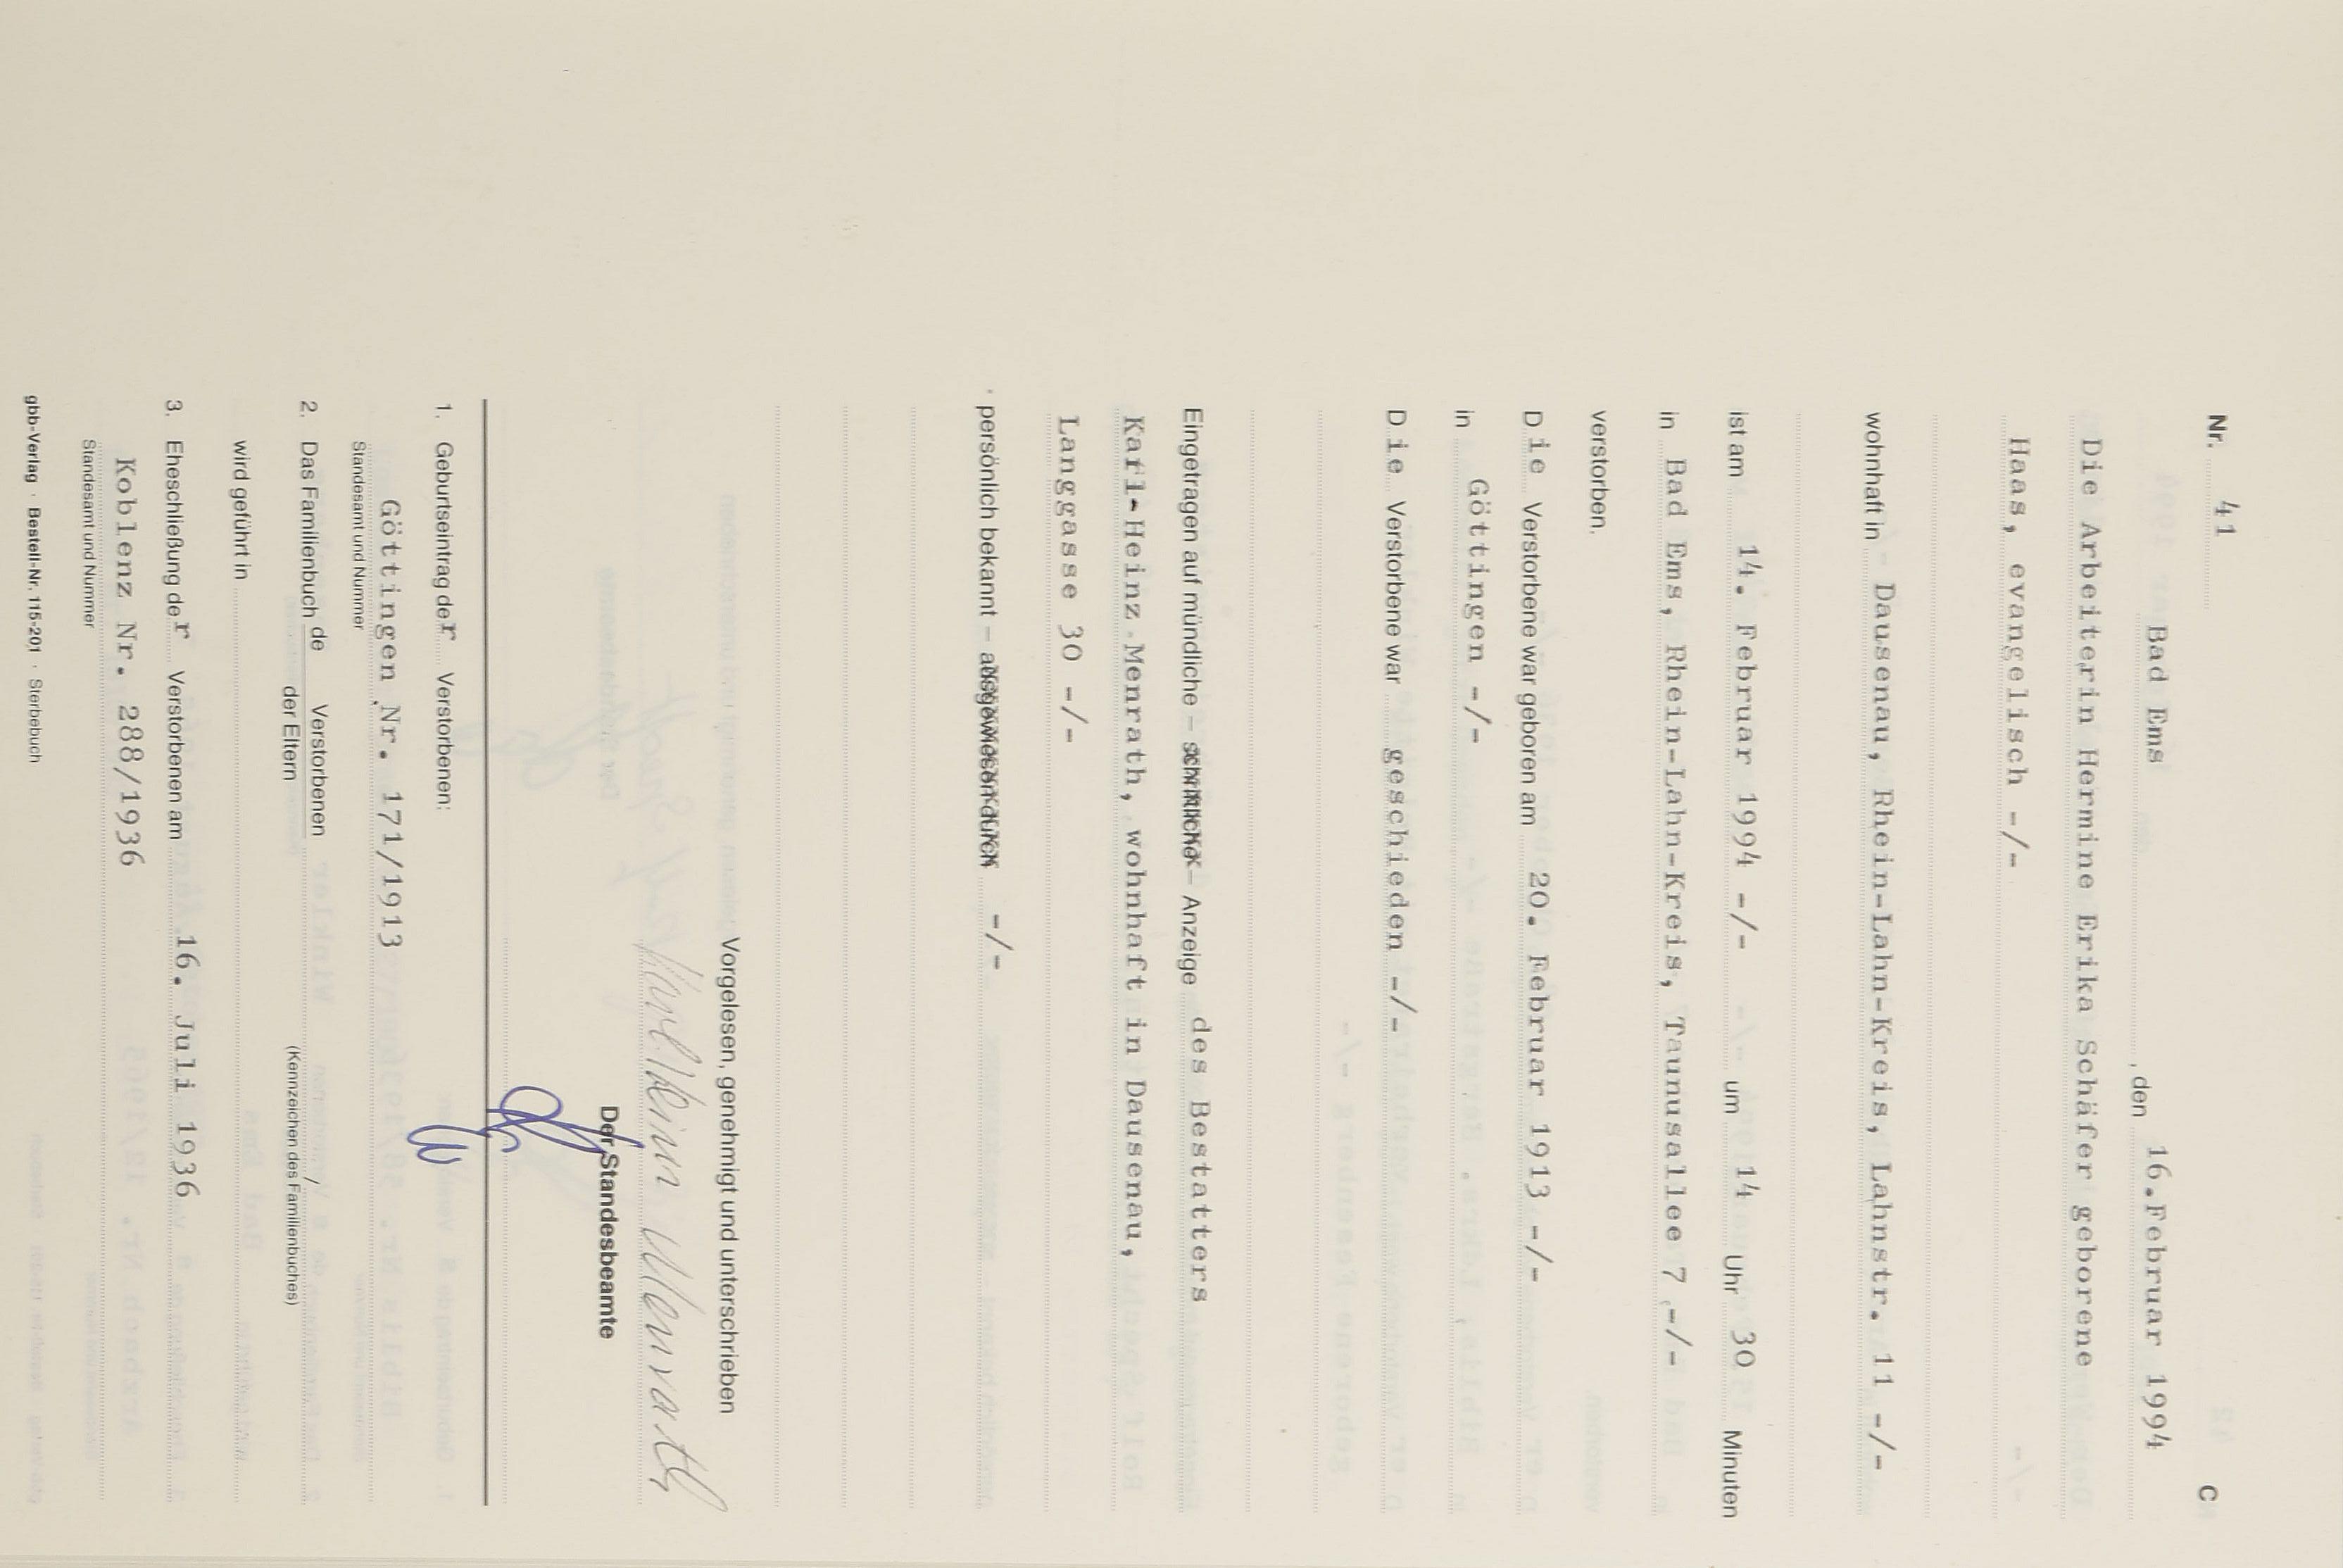 Nr. 41 C
Bad Ems , den 16.Februar 1994
Die Arbeiterin Hermine Erika Schäfer geborene
Haas, evangelisch -/-
wohnhaft in Dausenau, Rhein-Lahn-Kreis, Lahnstr. 11 -/-
ist am 14. Februar 1994 -/- um 14 Uhr 30 Minuten
in Bad Ems, Rhein-Lahn-Kreis, Taunusallee 7 -/-
verstorben.
Die Verstorbene war geboren am 20. Februar 1913 -/-
in Göttingen -/-
Die Verstorbene war geschieden -/-
Eingetragen auf mündliche – schriftliche – Anzeige des Bestatters
Karl-Heinz Menrath, wohnhaft in Dausenau,
Langgasse 30 -/-
persönlich bekannt – ausgewiesen durch -/-
Vorgelesen, genehmigt und unterschrieben
Karl Heinz Menrath
Der Standesbeamte
1. Geburtseintrag der Verstorbenen:
Göttingen Nr. 171/1913
Standesamt und Nummer
2. Das Familienbuch de Verstorbenen
der Eltern
(Kennzeichen des Familienbuches)
wird geführt in
3. Eheschließung der Verstorbenen am 16. Juli 1936
Koblenz Nr. 288/1936
Standesamt und Nummer
gbb-Verlag · Bestell-Nr. 115-201 · Sterbebuch